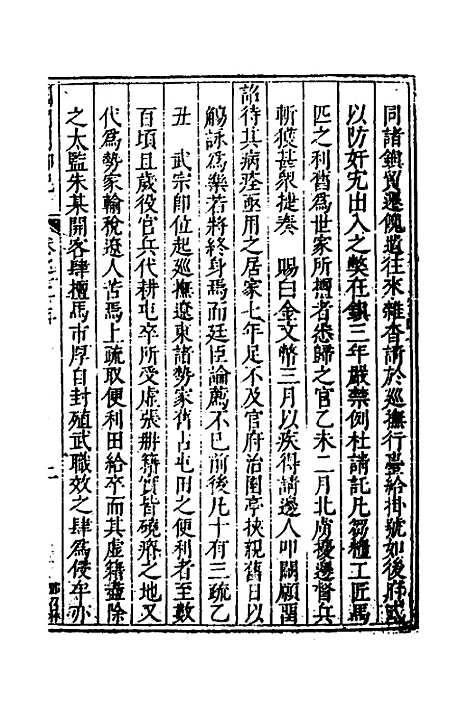 同諸鎮貿遷餽遺往來雜沓請於巡撫行臺給掛號如後府式
以防奸宄出入之獘在鎮三年嚴禁例杜請託凡芻糧工匠馬
匹之利舊爲世家所擅者悉歸之官乙未二月北虜擾邊督兵
斬獲甚衆捷奏 賜白金文幣三月以疾得請邊人叩闕願留
詔待其病痊亟用之居家七年足不及官府治園亭挾親舊日以
觴詠爲樂若將終身焉而廷臣論薦不已前後凡十有三疏乙
丑 武宗即位起巡撫遼東諸勢家舊占屯田之便利者至數
百頃且歲役官兵代耕屯卒所受虛張册籍實皆磽瘠之地又
代爲勢家輸稅遼人苦焉上疏取便利田給卒而其虛籍盡除
之太監朱某開客肆擅馬市厚自封殖武職效之肆爲侵牟亦